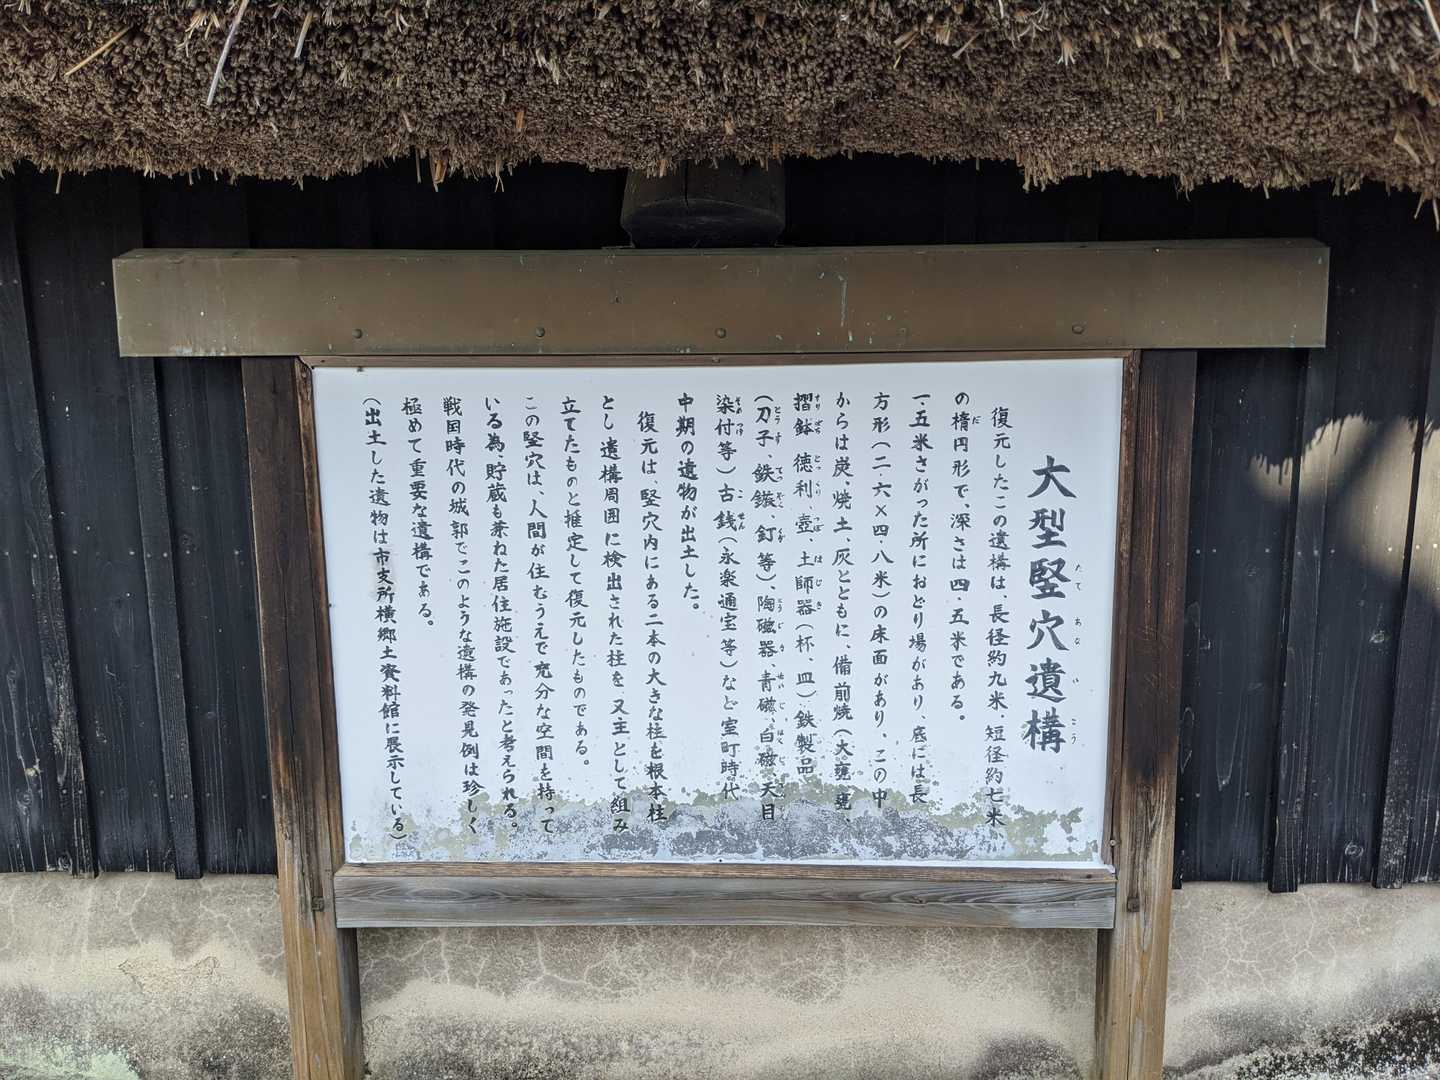 大型竪穴遺構
復元したこの遺構は、長径約九米、短径約七米
の楕円形で、深さは四・五米である。
一・五米さがった所におどり場があり、底には長
方形(二・六×四・八米)の床面があり、この中
からは炭、焼土、灰とともに、備前焼(大甕、甕、
摺鉢、徳利、壺、土師器(杯、皿)鉄製品
(刀子、鉄鏃、釘等)、陶磁器、青磁、白磁、天目
染付等)古銭(永楽通宝等)など室町時代
中期の遺物が出土した。
復元は、竪穴内にある二本の大きな柱を根本柱
とし遺構周囲に検出された柱を又主として組み
立てたものと推定して復元したものである。
この竪穴は、人間が住むうえで充分な空間を持って
いる為、貯蔵も兼ねた居住施設であったと考えられる。
戦国時代の城郭でこのような遺構の発見例は珍しく
極めて重要な遺構である。
(出土した遺物は市支所横郷土資料館に展示している)